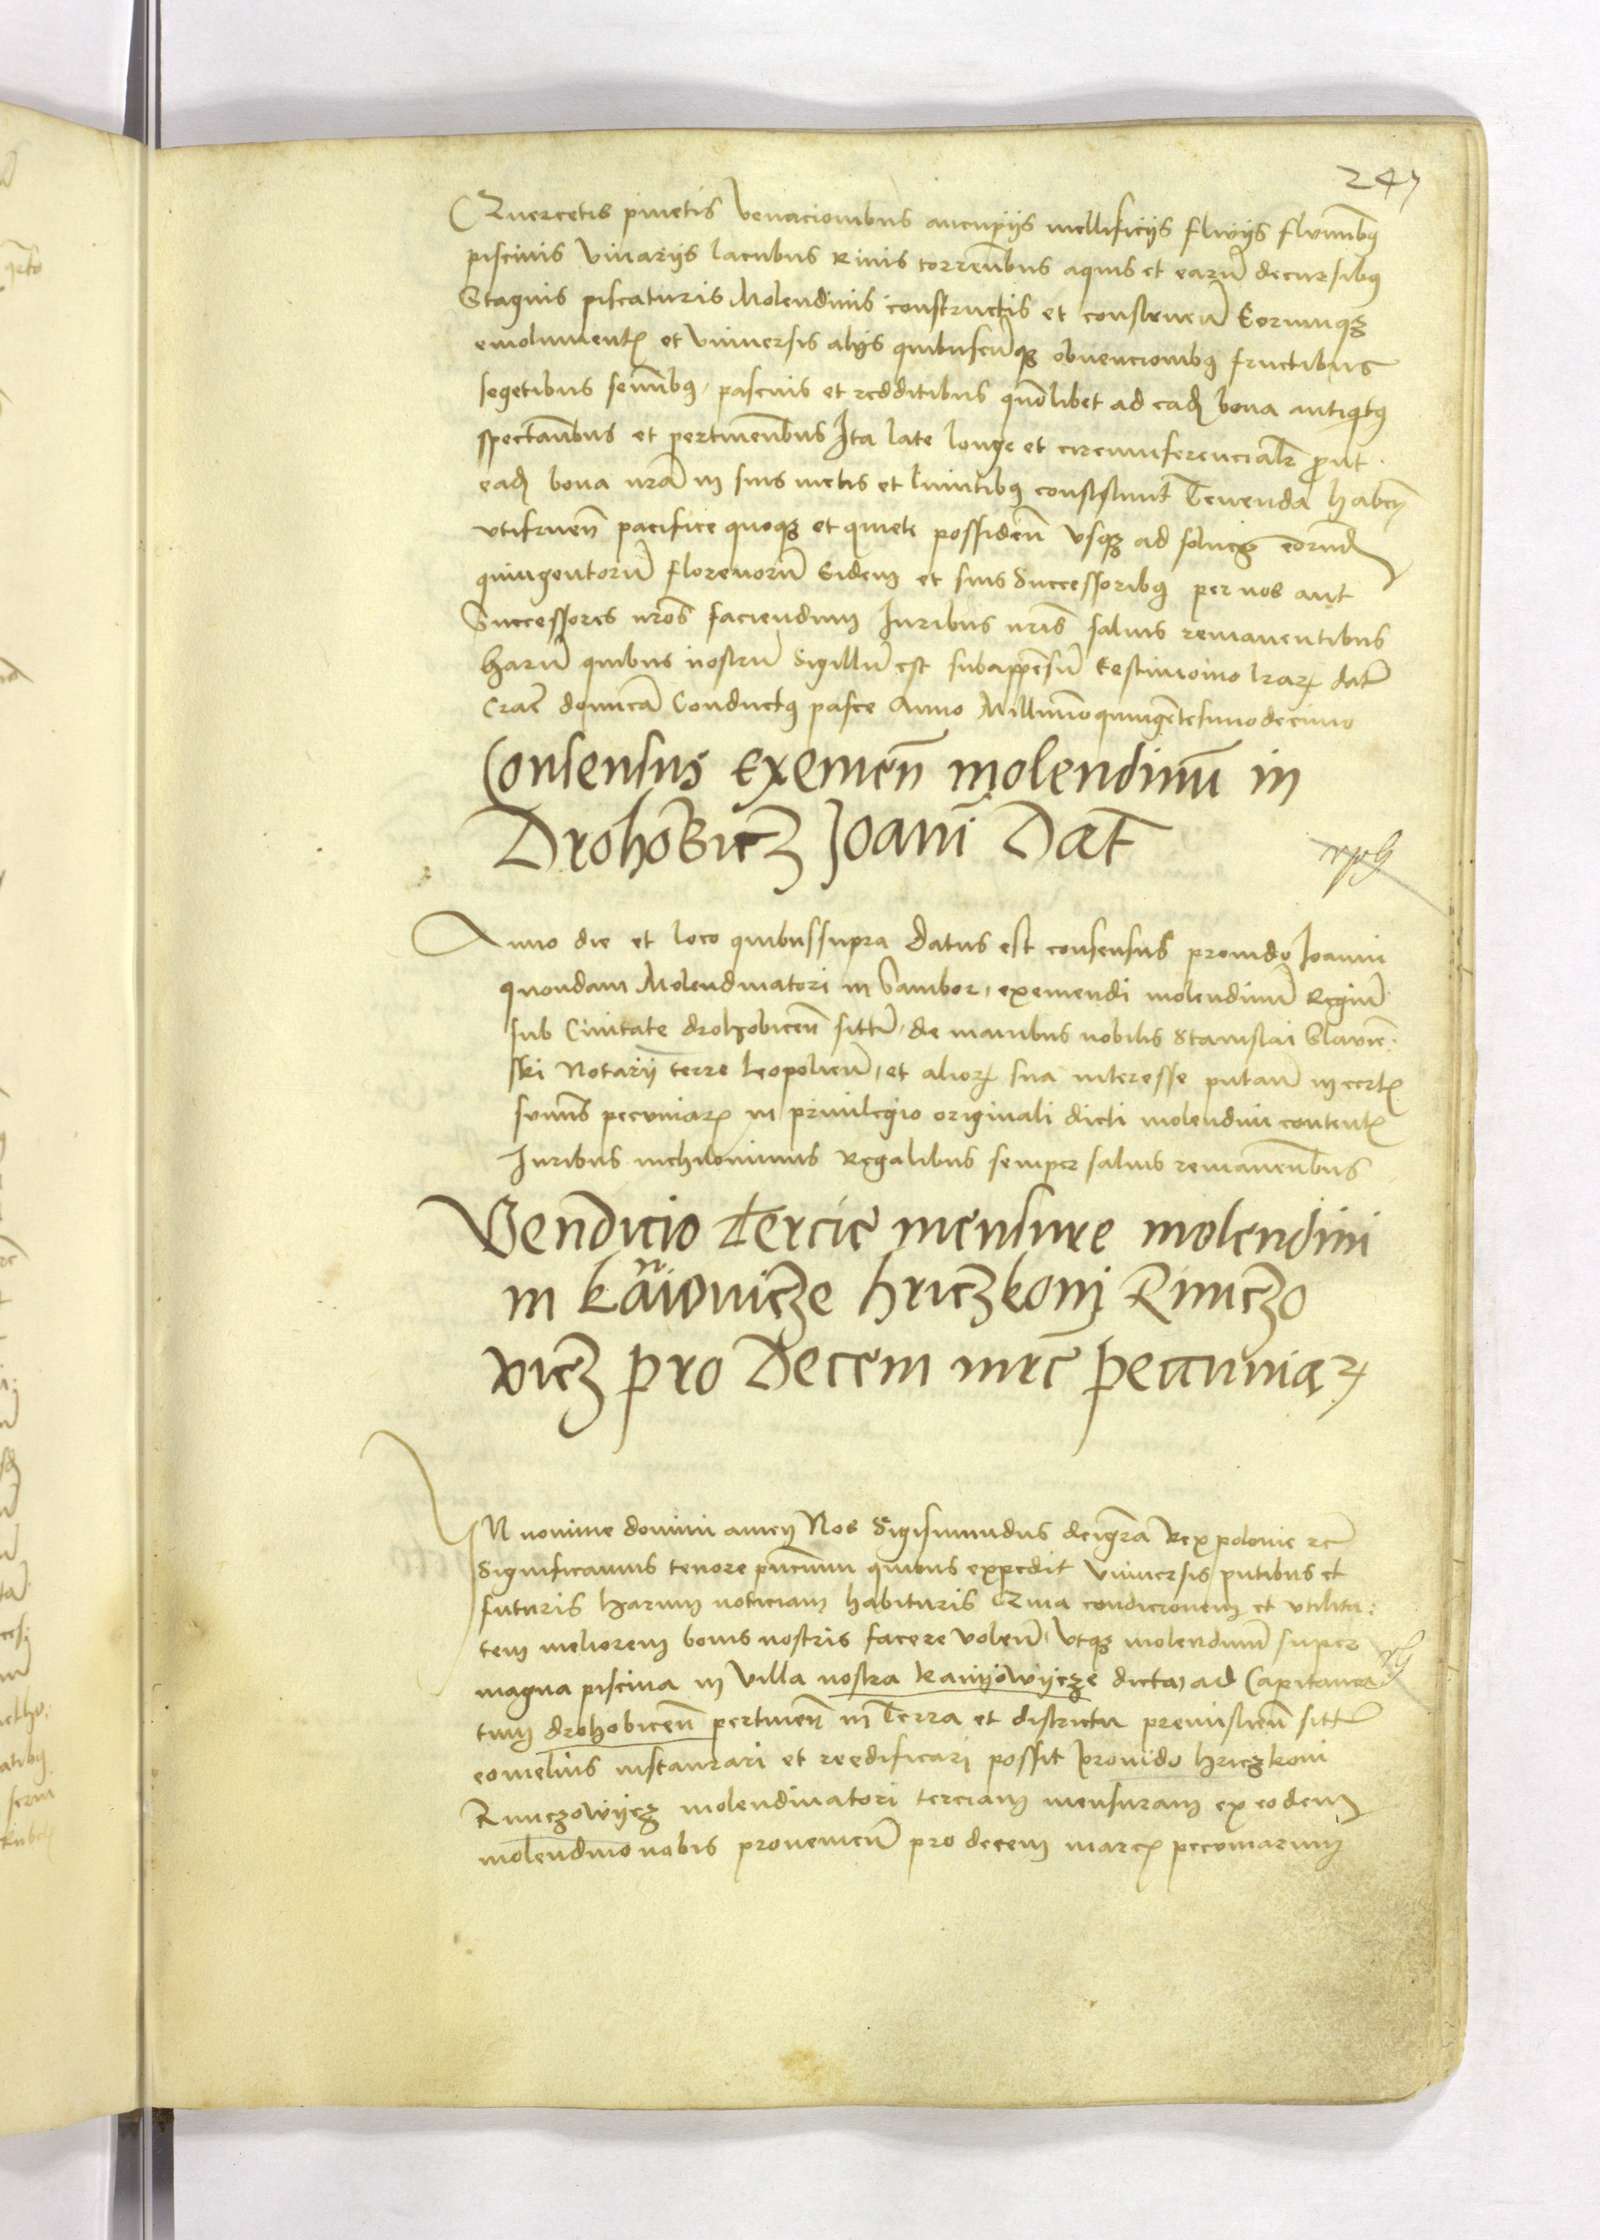 247
Quercetis pinetis Venacionibus aucupijs mellificijs fluvijs flumībꝫ
piscinis Vivarijs lacubus Rivis torrentibus aquis et earū decursibꝫ
Stagnis piscaturis Molendinis constructis et construen̄ Eorumqꝫ
emolumentꝭ et Vniversis alijs quibuscūqꝫ obvencionibꝫ fructibus
segetibus semībꝫ pascuis et redditibus quōlibet ad eadꝭ bona antiqtꝫ
spectan̄bus et pertinen̄bus Ita late longe et circumferencialr̄ prout
eadꝭ bona nrā in suis metis et limitibꝫ consistunt Tenenda haben̄
vtifruen̄ pacifice quoqꝫ et quiete possiden̄ Vsqꝫ ad soluc̄ eorundꝭ
quingentorū florenorū Eidem et suis Successoribꝫ per nos aut
Successores nrōs faciendum Iuribus nrīs salvis remanentibus
Harū quibus nostrū Sigillū est subappensū testimonio lrarꝝ dat̄
Crac̄ domīca Conductꝫ pasce Anno Millimoquingētesimodecimo
Consensus Exemen̄ molendinū in
Drohobicz Ioanī Dat̄
Anno die et loco quibussupra Datus est consensus provido Ioanni
quondam Molendinatori in Sambor, exemendi molendinū Regiū
sub Civitate drohobicen̄ sitū, de manibus nobilis Stanislai Slavie:
ski Notarij terre leopolien̄, et aliorꝝ sua interesse putan̄ in certꝭ
sumīs pecuniarꝝ in privilegio originali dicti molendini contentꝭ
Iuribus nichilominus Regalibus semper salvis remanen̄bus
Vendicio Tercie mensure molendini
in kaniowicze hriczkoni Riniczo
wicz pro Decem mrc̄ pecuniarꝝ
IN nomine domini amen Nos Sigismundus deigrā Rex polonie rc̄
Significamus tenore pn̄cium quibus expedit Vniversis pn̄tibus et
futuris harum noticiam habituris Quia condicionem et utilita:
tem meliorem bonis nostris facere volen̄, Vtqꝫ molendinū super
magna piscina in Villa nostra kanyowycze dicta, ad Capitanea
tum drohobicen̄ pertinen̄ in Terra et districtu premislien̄ sitū
eomelius instaurari et reedificari possit provido hriczkoni
Rinczowycz molendinatori terciam mensuram ex eodem
molendino nobis provenien̄ pro decem marcꝭ pecuniarum